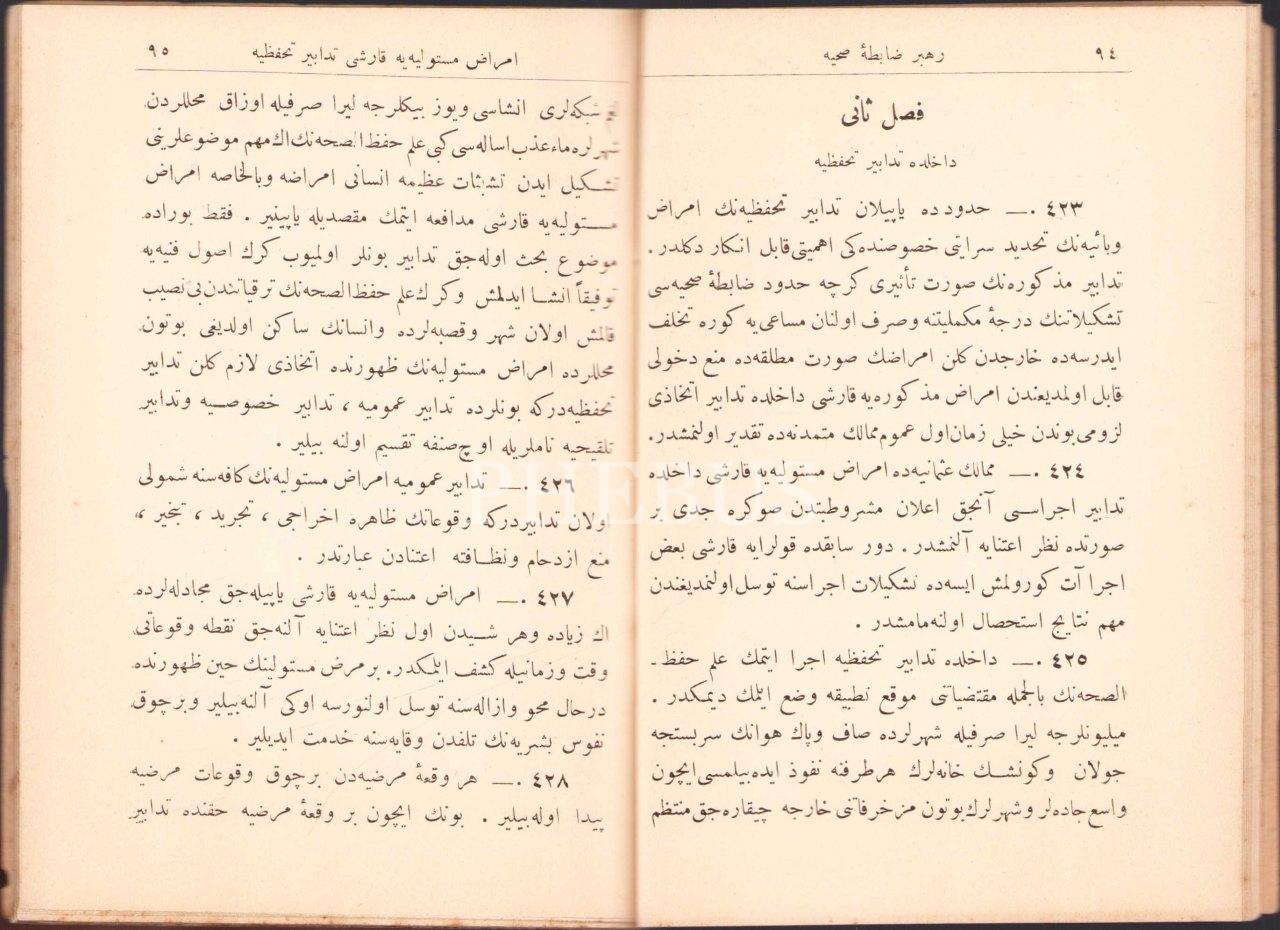 ٩٤
رهبر ضابطهٔ صحیه
فصل ثانی
داخلده تدابیر تحفظیه
٤٢٣ .— حدودده یاپیلان تدابیر تحفظیه‌نك امراض
وبائیه‌نك تحدید سرایتی خصوصنده‌کی اهمیتی قابل انکار دکلدر .
تدابیر مذکوره‌نك صورت تأثیری کرچه حدود ضابطهٔ صحیه‌سی
تشکیلاتنك درجهٔ مکملیتنه وصرف اولنان مساعی‌یه کوره تخلف
ایدرسه‌ده خارجدن کلن امراضك صورت مطلقه‌ده منع دخولی
قابل اولمدیغندن امراض مذکوره‌یه قارشی داخلده تدابیر اتخاذی
لزومی بوندن خیلی زمان اول عموم ممالك متمدنه‌ده تقدیر اولنمشدر.
٤٢٤ .— ممالك عثمانیه‌ده امراض مستولیه‌یه قارشی داخلده
تدابیر اجراسی آنجق اعلان مشروطیتدن صوکره جدی بر
صورتده نظر اعتنایه آلنمشدر . دور سابقده قولرایه قارشی بعض
اجراآت کورولمش ایسه‌ده تشکیلات اجراسنه توسل اولنمدیغندن
مهم نتایج استحصال اولنه‌مامشدر .
٤٢٥ .— داخلده تدابیر تحفظیه اجرا ایتمك علم حفظ-
الصحه‌نك بالجمله مقتضیاتنی موقع تطبیقه وضع ایلمك دیمکدر .
میلیونلرجه لیرا صرفیله شهرلرده صاف وپاك هوانك سربستجه
جولان وکونشك خانه‌لرك هر طرفنه نفوذ ایده‌بیلمسی ایچون
واسع جاده‌لر وشهرلرك بوتون مزخرفاتنی خارجه چیقاره‌جق منتظم
٩٥
امراض مستولیه‌یه قارشی تدابیر تحفظیه
شبکه‌لری انشاسی ویوز بیکلرجه لیرا صرفیله اوزاق محللردن
شهرلره ماء عذب اساله‌سی کبی علم حفظ الصحه‌نك اك مهم موضوعلرینی
تشکیل ایدن تشبثات عظیمه انسانی امراضه وبالخاصه امراض
مستولیه‌یه قارشی مدافعه ایتمك مقصدیله یاپیلیر . فقط بوراده
موضوع بحث اوله‌جق تدابیر بونلر اولمیوب کرك اصول فنیه‌یه
توفیقاً انشا ایدلمش وکرك علم حفظ الصحه‌نك ترقیاتندن بی نصیب
قالمش اولان شهر وقصبه‌لرده وانسانك ساکن اولدیغی بوتون
محللرده امراض مستولیه‌نك ظهورنده اتخاذی لازم کلن تدابیر
تحفظیه‌درکه بونلرده تدابیر عمومیه ، تدابیر خصوصیه وتدابیر
تلقیحیه ناملریله اوچ صنفه تقسیم اولنه بیلیر .
٤٢٦ .— تدابیر عمومیه امراض مستولیه‌نك کافه‌سنه شمولی
اولان تدابیردرکه وقوعاتك ظاهره اخراجی ، تجرید ، تبخیر ،
منع ازدحام ونظافته اعتنادن عبارتدر .
٤٢٧ .— امراض مستولیه‌یه قارشی یاپیله‌جق مجادله‌لرده
اك زیاده وهر شیدن اول نظر اعتنایه آلنه‌جق نقطه وقوعاتی
وقت وزمانیله کشف ایلمکدر. بر مرض مستولینك حین ظهورنده
درحال محو وازاله‌سنه توسل اولنورسه اوکی آلنه‌بیلیر وبرچوق
نفوس بشریه‌نك تلفدن وقایه‌سنه خدمت ایدیلیر .
٤٢٨ .— هر وقعهٔ مرضیه‌دن برچوق وقوعات مرضیه
پیدا اوله‌بیلیر . بونك ایچون بر وقعهٔ مرضیه حقنده تدابیر
PHEBUS